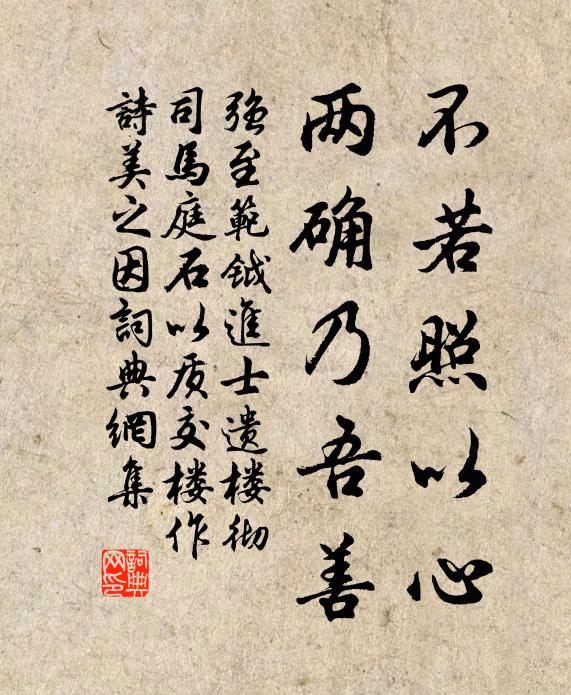 不若照以心
两确乃吾善
强至範鉞進士遗楼彻
司馬庭石以质交楼作
詩美之因詞典網集
詞典网印